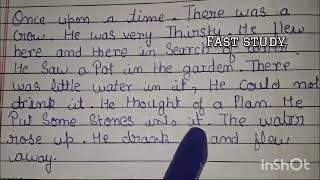 Once upon a time. There was a
Crow. He was very Thirsty. He flew
here and there in Search of
FAST STUDY
He Saw a Pot in the garden. There
was little water in it, He could not
drink it. He thought of a Plan. He
Put Some Stones into it. The water
rose up. He drank and flew
away.
InShOt